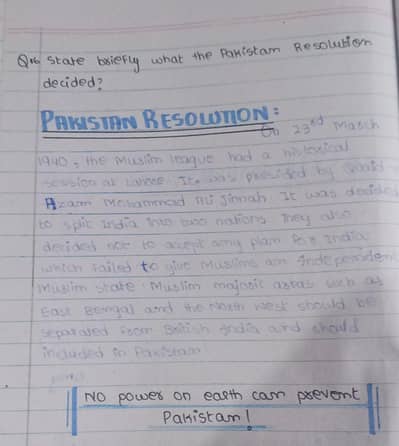 Q16 State briefly what the Pakistan Resolution
decided?
PAKISTAN RESOLUTION:
On 23rd March
1940, the Muslim league had a historical
session at Lahore. It was presided by Quaid
Azam Mohammad Ali Jinnah. It was decided
to split India into two nations. They also
decided not to accept any plan for India
which failed to give Muslims an Independent
Muslim state. Muslim majority areas such as
East Bengal and the North West should be
separated from British India and should
included in Pakistan.
NO power on earth can prevent
Pakistan!